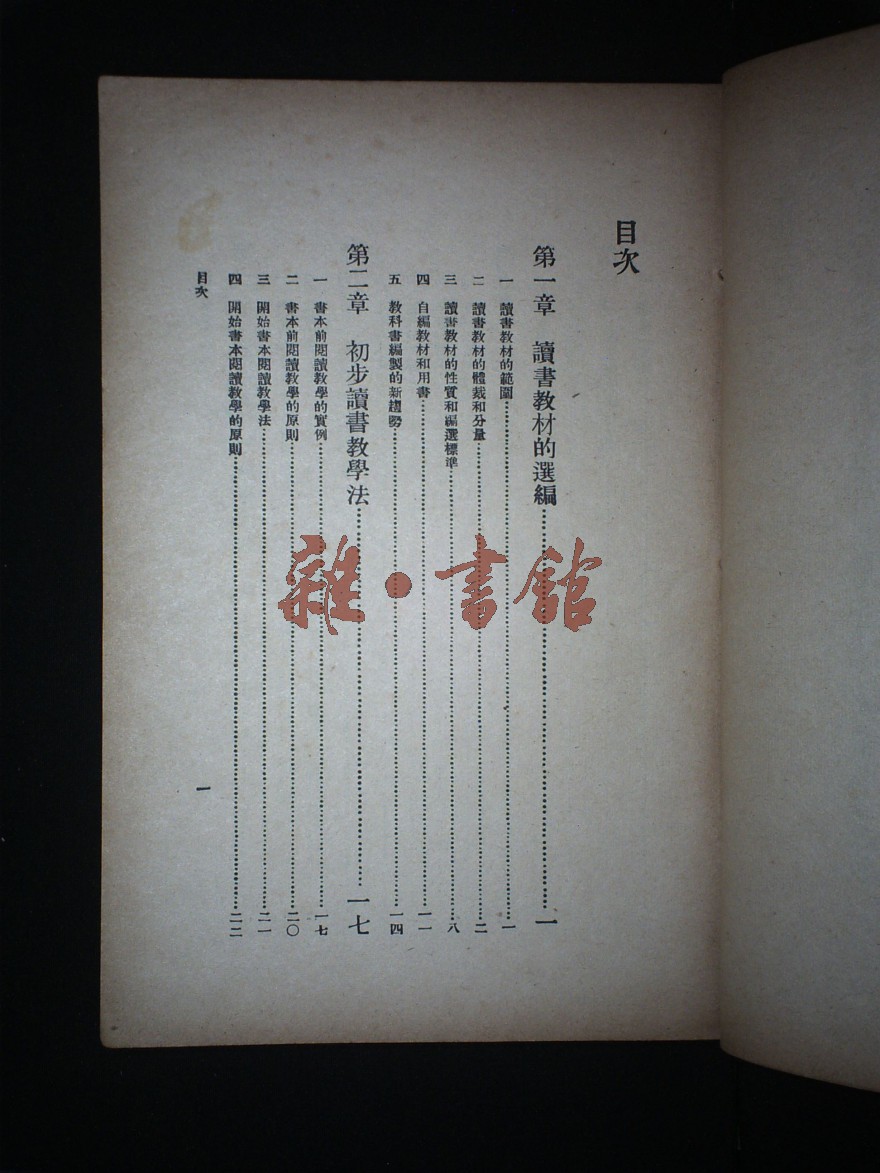 目次
第一章　讀書教材的選編……一
一　讀書教材的範圍……一
二　讀書教材的體裁和分量……二
三　讀書教材的性質和編選標準……八
四　自編教材和用書……一一
五　教科書編製的新趨勢……一四
第二章　初步讀書教學法……一七
一　書本前閱讀教學的實例……一七
二　書本前閱讀教學的原則……二〇
三　開始書本閱讀教學法……二一
四　開始書本閱讀教學的原則……二二
目次
一
雜·書館